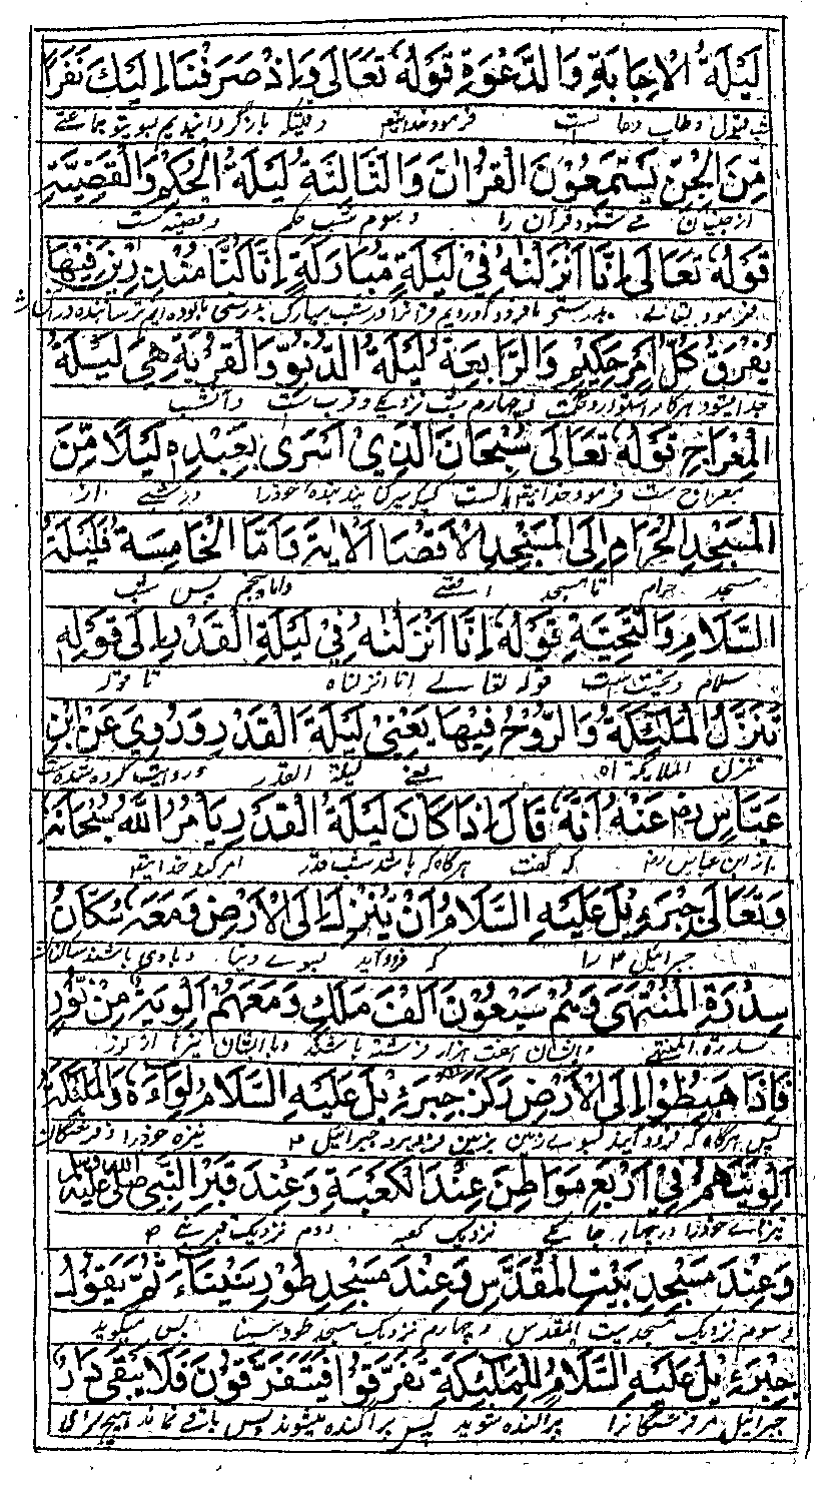 لَيْلَةُ الْاِجَابَةِ وَالدَّعْوَةِ قَوْلُهٗ تَعَالٰى وَاِذْ صَرَفْنَا اِلَيْكَ نَفَرًا
شب قبول و طلب دعا است فرمود خدایتعالی وقتیکه بازگردانیدیم بسوی تو جماعتے
مِّنَ الْجِنِّ يَسْتَمِعُوْنَ الْقُرْاٰنَ وَالثَّالِثَةُ لَيْلَةُ الْحُكْمِ وَالْقَضِيَّةِ
از جنیان مے شنودند قرآن را و سوم شب حکم و قضیه است
قَوْلُهٗ تَعَالٰى اِنَّا اَنْزَلْنٰهُ فِيْ لَيْلَةٍ مُّبَارَكَةٍ اِنَّا كُنَّا مُنْذِرِيْنَ فِيْهَا
يُفْرَقُ كُلُّ اَمْرٍ حَكِيْمٍ وَالرَّابِعَةُ لَيْلَةُ الدُّنُوِّ وَالْقُرْبَةِ هِيَ لَيْلَةُ
الْمِعْرَاجِ قَوْلُهٗ تَعَالٰى سُبْحَانَ الَّذِيْ اَسْرٰى بِعَبْدِهٖ لَيْلًا مِّنَ
معراج است فرمود خدایتعالی در شبے از
الْمَسْجِدِ الْحَرَامِ اِلَى الْمَسْجِدِ الْاَقْصَا الْاٰيَةَ فَاَمَّا الْخَامِسَةُ فَلَيْلَةُ
مسجد حرام تا مسجد اقصے و اما پنجم پس شب
السَّلَامِ وَالتَّحِيَّةِ قَوْلُهٗ اِنَّا اَنْزَلْنٰهُ فِيْ لَيْلَةِ الْقَدْرِ اِلٰى قَوْلِهٖ
سلام و تحیت است قوله تعالے انا انزلناه تا قوله
تَنَزَّلُ الْمَلٰٓئِكَةُ وَالرُّوْحُ فِيْهَا يَعْنِيْ لَيْلَةَ الْقَدْرِ وَرُوِيَ عَنْ ابْنِ
تنزل الملائکة اه یعنے لیلة القدر و روایت کرده شده است
عَبَّاسٍ رض عَنْهُ اَنَّهٗ قَالَ اِذَا كَانَ لَيْلَةُ الْقَدْرِ يَاْمُرُ اللّٰهُ سُبْحَانَهٗ
از ابن عباس رض که گفت هرگاه که باشد شب قدر امر کند خدایتعالی
وَتَعَالٰى جِبْرَئِيْلَ عَلَيْهِ السَّلَامُ اَنْ يَّنْزِلَ اِلَى الْاَرْضِ وَمَعَهٗ سُكَّانُ
جبرائیل ع را که فرود آید بسوے دنیا و با وی باشند ساکنان
سِدْرَةِ الْمُنْتَهٰى وَهُمْ سَبْعُوْنَ اَلْفَ مَلَكٍ وَمَعَهُمْ اَلْوِيَةٌ مِّنْ نُّوْرٍ
سدرة المنتهے و ایشان هفت هزار فرشته باشند و با ایشان نیزها از نور
فَاِذَا هَبَطُوْا اِلَى الْاَرْضِ رَكَزَ جِبْرَئِيْلُ عَلَيْهِ السَّلَامُ لِوَآءَهٗ وَالْمَلٰٓئِكَةُ
پس هرگاه که فرود آیند بسوے زمین بزمین فرو برد جبرائیل ع نیزه خود را و فرشتگان
اَلْوِيَتَهُمْ فِيْ اَرْبَعِ مَوَاطِنَ عِنْدَ الْكَعْبَةِ وَعِنْدَ قَبْرِ النَّبِيِّ صلى الله عليه وسلم
نیزہاے خود را در چهار جائے نزدیک کعبه دوم نزدیک قبر نبے ص
وَعِنْدَ مَسْجِدِ بَيْتِ الْمُقَدَّسِ وَعِنْدَ مَسْجِدِ طُوْرِ سَيْنَآءَ ثُمَّ يَقُوْلُ
و سوم نزدیک مسجد بیت المقدس و چهارم نزدیک مسجد طور سینا پس میگوید
جِبْرَئِيْلُ عَلَيْهِ السَّلَامُ لِلْمَلٰٓئِكَةِ تَفَرَّقُوْا فَيَتَفَرَّقُوْنَ فَلَا يَبْقٰى دَارٌ
جبرائیل مر فرشتگانرا پراگنده شوید پس پراگنده میشوند پس باقے نماند هیچ سرای